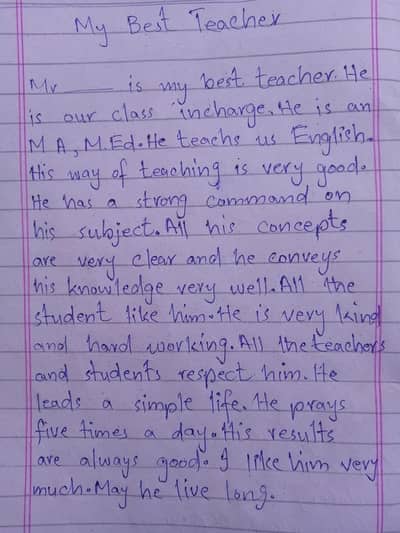 My Best Teacher
Mr ____ is my best teacher. He
is our class incharge. He is an
M A, M.Ed. He teachs us English.
His way of teaching is very good.
He has a strong command on
his subject. All his concepts
are very clear and he conveys
his knowledge very well. All the
student like him. He is very kind
and hard working. All the teachers
and students respect him. He
leads a simple life. He prays
five times a day. His results
are always good. I like him very
much. May he live long.